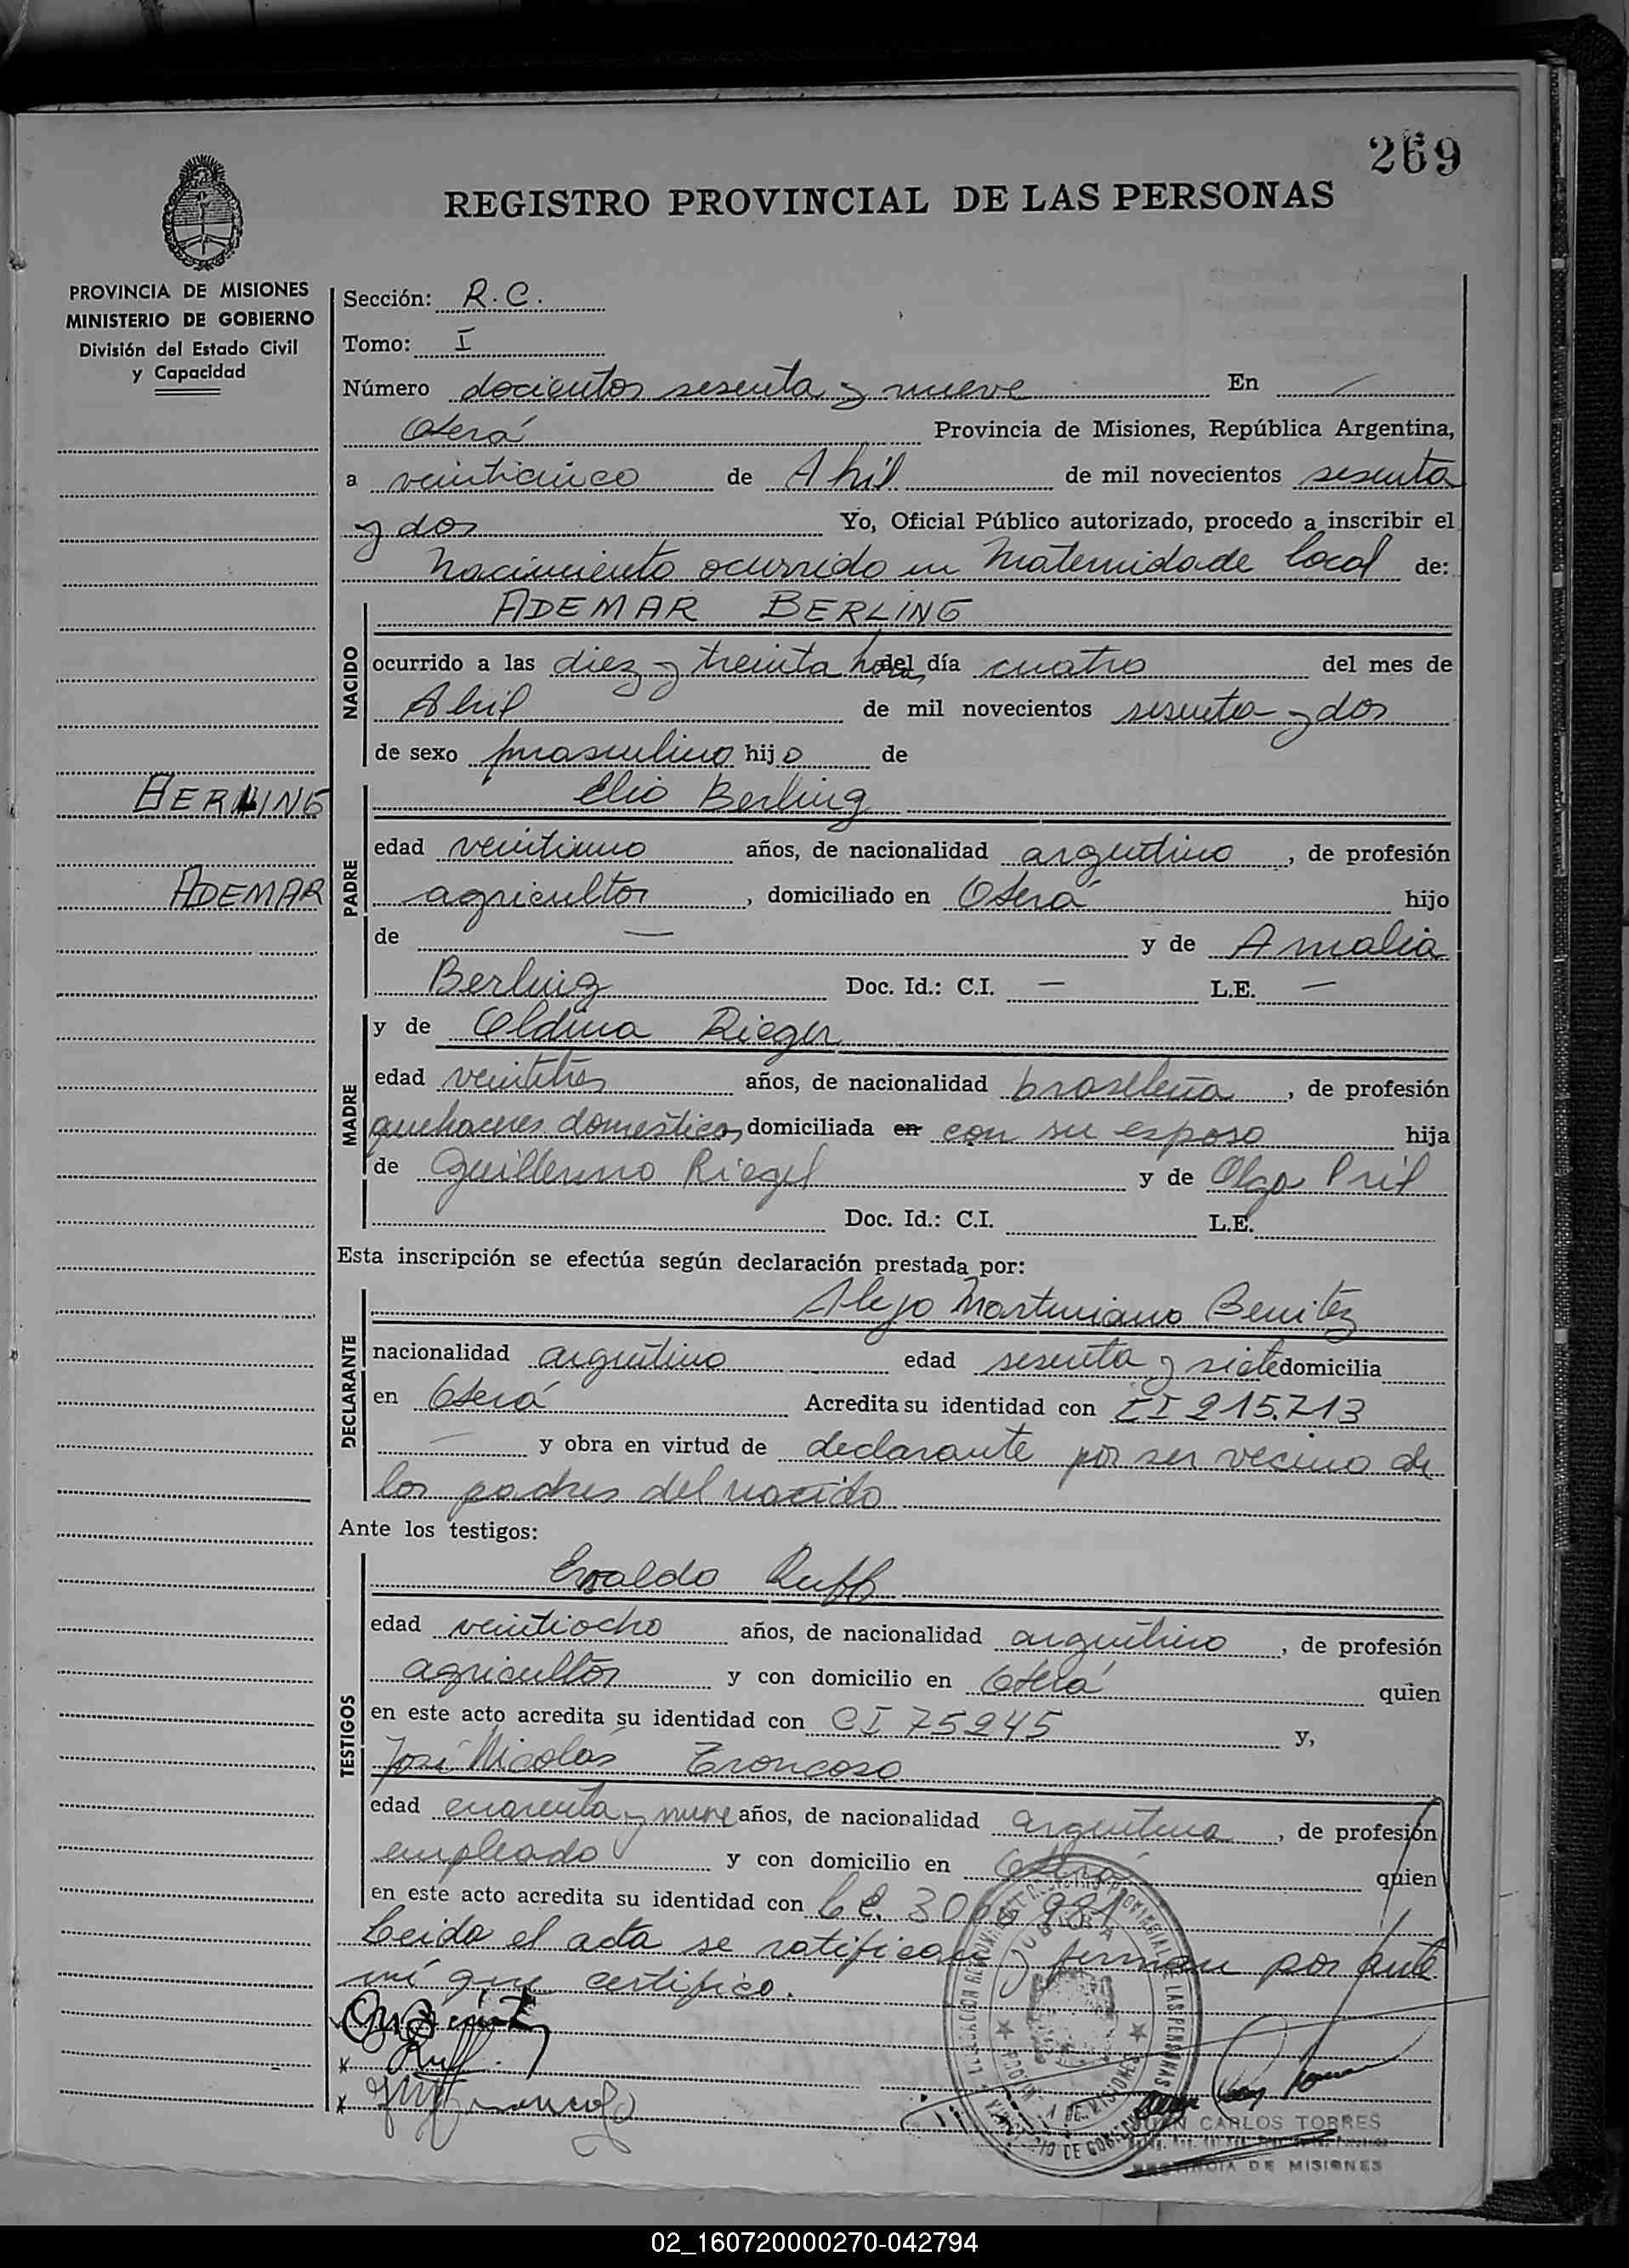 269
REGISTRO PROVINCIAL DE LAS PERSONAS
PROVINCIA DE MISIONES
MINISTERIO DE GOBIERNO
División del Estado Civil
y Capacidad
BERLING
ADEMAR
Sección: R.C.
Tomo: I
Número docientos sesenta y nueve En
Oberá Provincia de Misiones, República Argentina,
a veinticinco de Abril de mil novecientos sesenta
y dos Yo, Oficial Público autorizado, procedo a inscribir el
Nacimiento ocurrido en Maternidade local de:
NACIDO
ADEMAR BERLING
ocurrido a las diez y treinta horas del día cuatro del mes de
Abril de mil novecientos sesenta y dos
de sexo masculino hijo de
PADRE
Elio Berling
edad veintiuno años, de nacionalidad argentino, de profesión
agricultor, domiciliado en Oberá hijo
de — y de Amalia
Berling Doc. Id.: C.I. — L.E. —
MADRE
y de Oldina Rieger
edad veintitres años, de nacionalidad brasileña, de profesión
quehaceres domesticos, domiciliada en con su esposo hija
de Guillermo Riegel y de Olga Pril
Doc. Id.: C.I. L.E.
Esta inscripción se efectúa según declaración prestada por:
DECLARANTE
Alejo Martiniano Benitez
nacionalidad argentino edad sesenta y siete domicilia
en Oberá Acredita su identidad con CI 215.713
— y obra en virtud de declarante por ser vecino de
los padres del nacido
Ante los testigos:
TESTIGOS
Evaldo Ruff
edad veintiocho años, de nacionalidad argentino, de profesión
agricultor y con domicilio en Oberá quien
en este acto acredita su identidad con CI 75245 y,
José Nicolás Troncoso
edad cuarenta y nueve años, de nacionalidad argentina, de profesión
empleado y con domicilio en Oberá quien
en este acto acredita su identidad con L.E.
Leida el acta se ratifican firman por ante
mí que certifico.
Ruff
JUAN CARLOS TORRES
PROVINCIA DE MISIONES
02_160720000270-042794